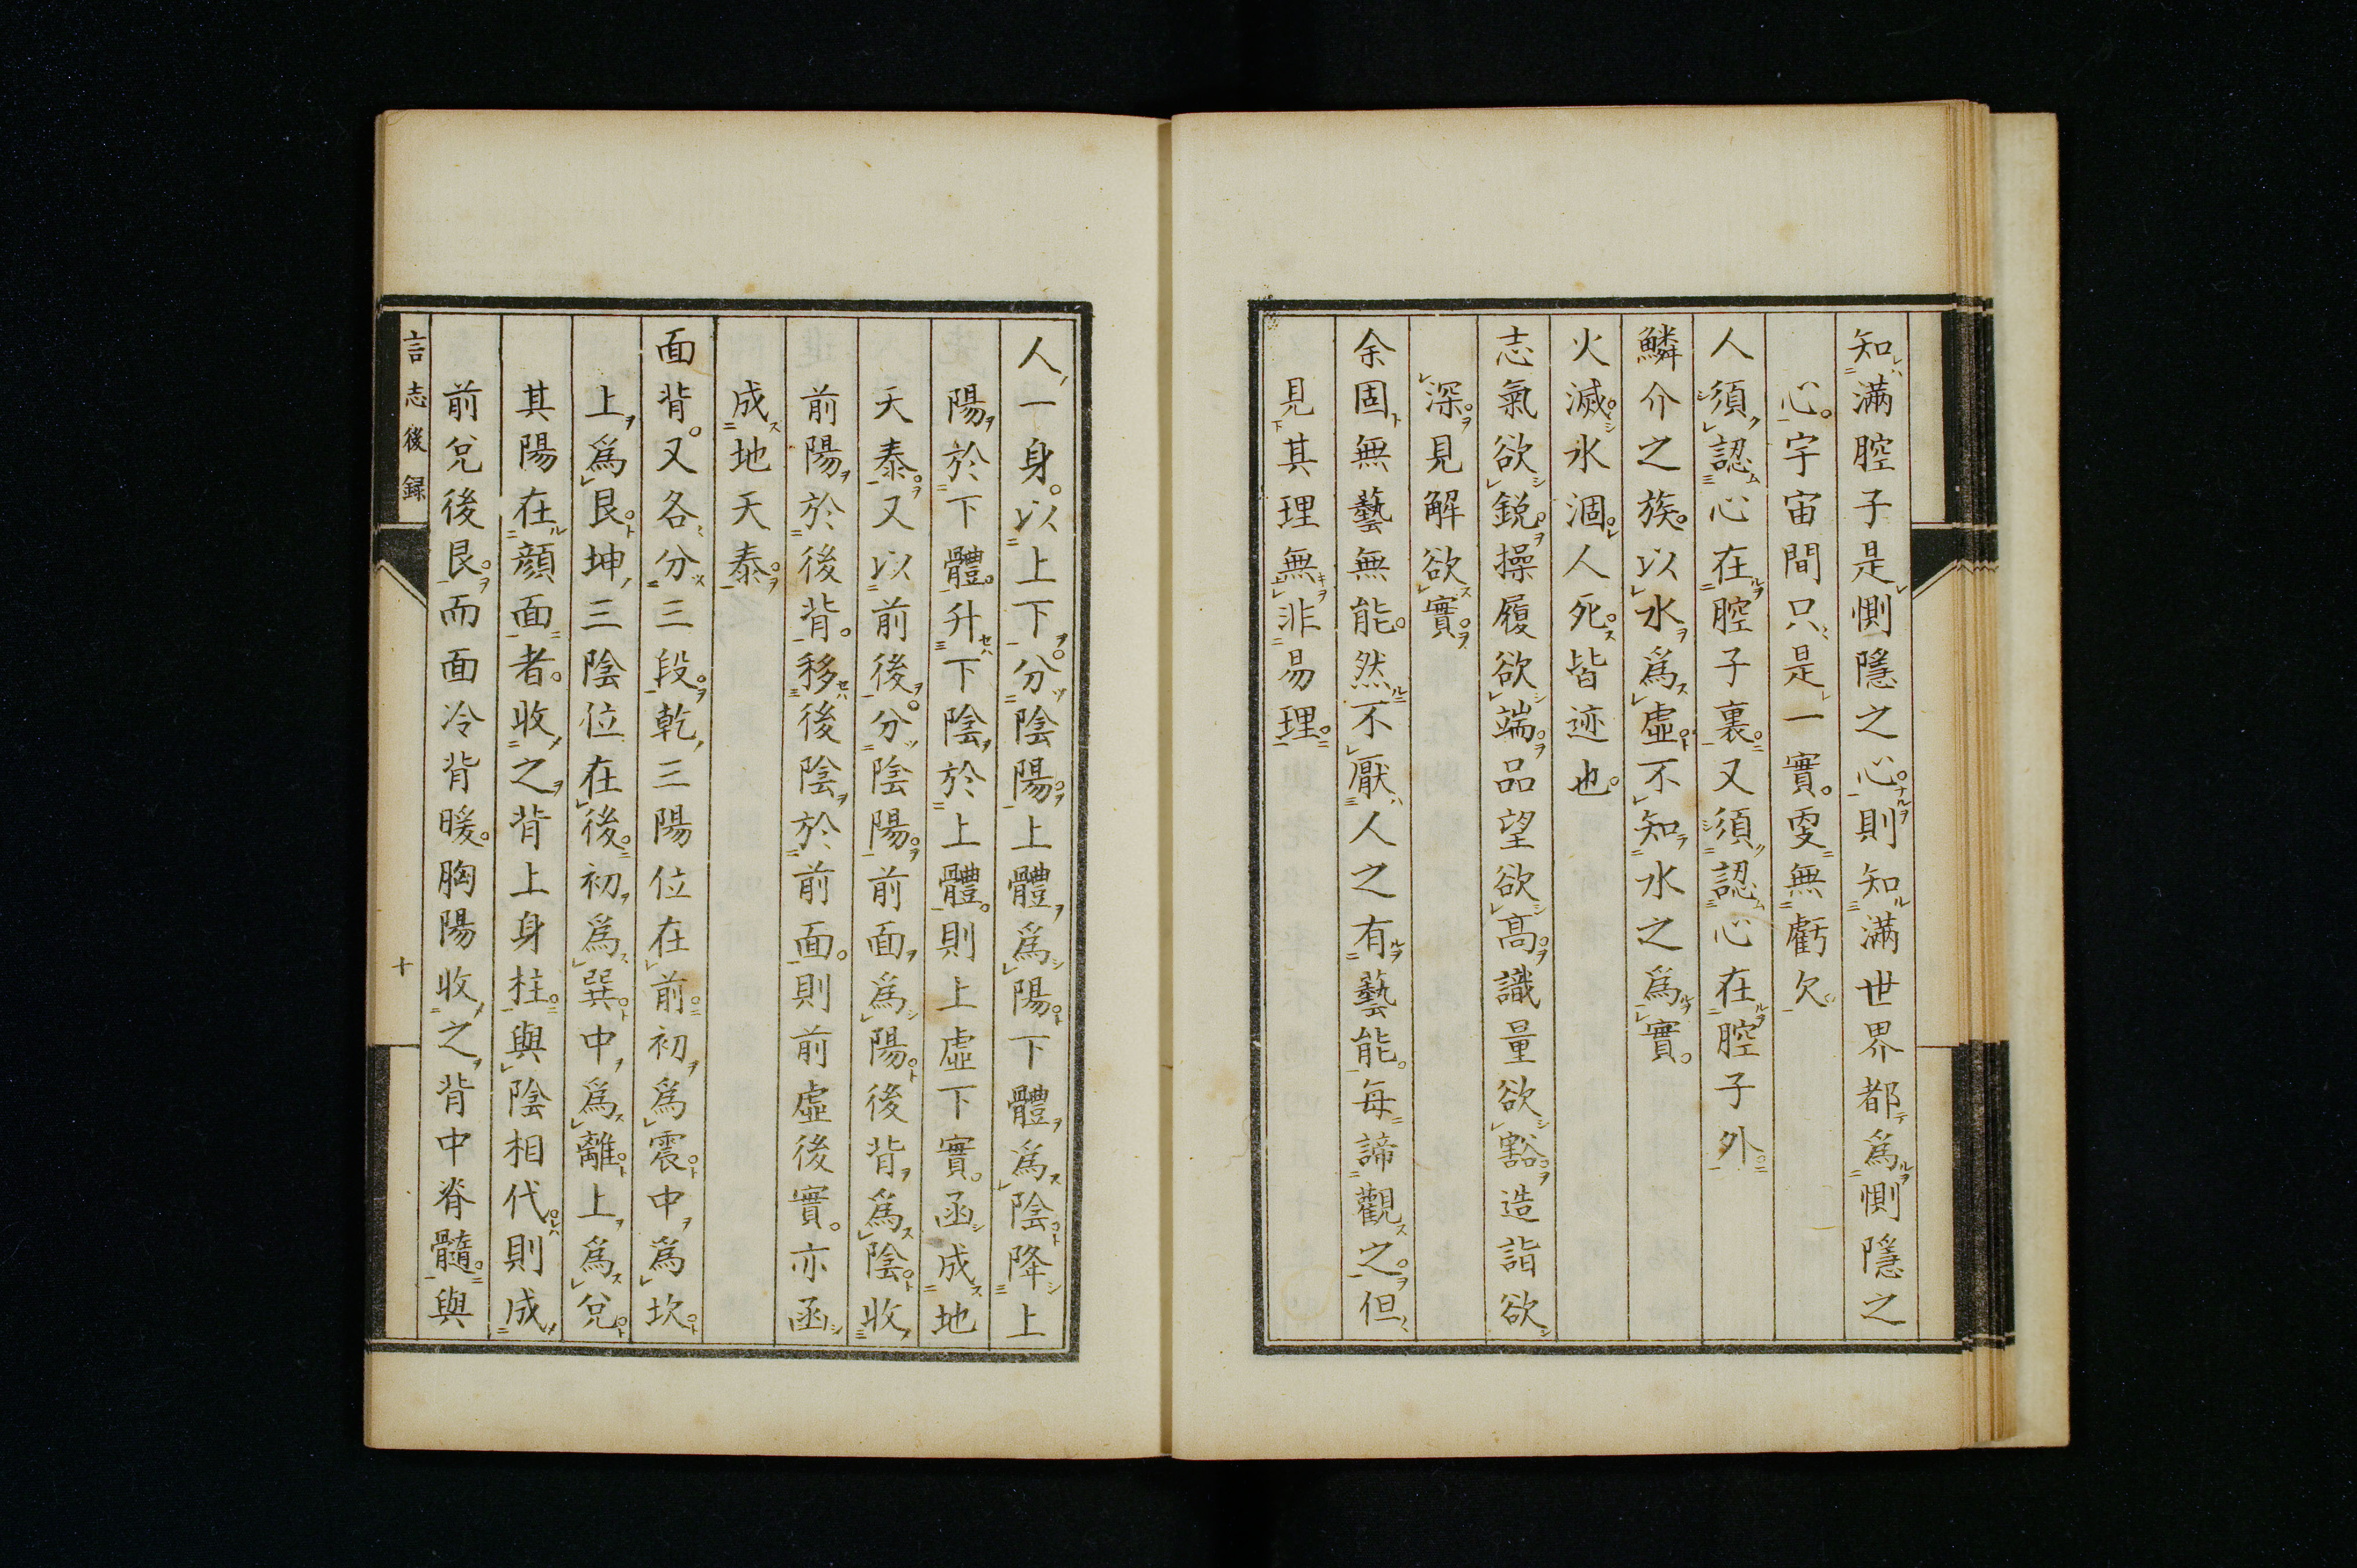 知滿腔子是惻隱之心則知滿世界都爲惻隱之
心宇宙間只是一實更無虧欠
人須認心在腔子裏又須認心在腔子外
鱗介之族以水爲虛不知水之爲實
火滅水涸人死皆迹也
志氣欲鋭操履欲端品望欲高識量欲豁造詣欲
深見解欲實
余固無藝無能然不厭人之有藝能每諦觀之但
見其理無非易理
人一身以上下分陰陽上體爲陽下體爲陰降上
陽於下體升下陰於上體則上虛下實函成地
天泰又以前後分陰陽前面爲陽後背爲陰收
前陽於後背移後陰於前面則前虛後實亦函
成地天泰
面背又各分三段乾三陽位在前初爲震中爲坎
上爲艮坤三陰位在後初爲巽中爲離上爲兌
其陽在顔面者收之背上身柱與陰相代則成
前兌後艮而面冷背暖胸陽收之背中脊髓與
言志後録
十